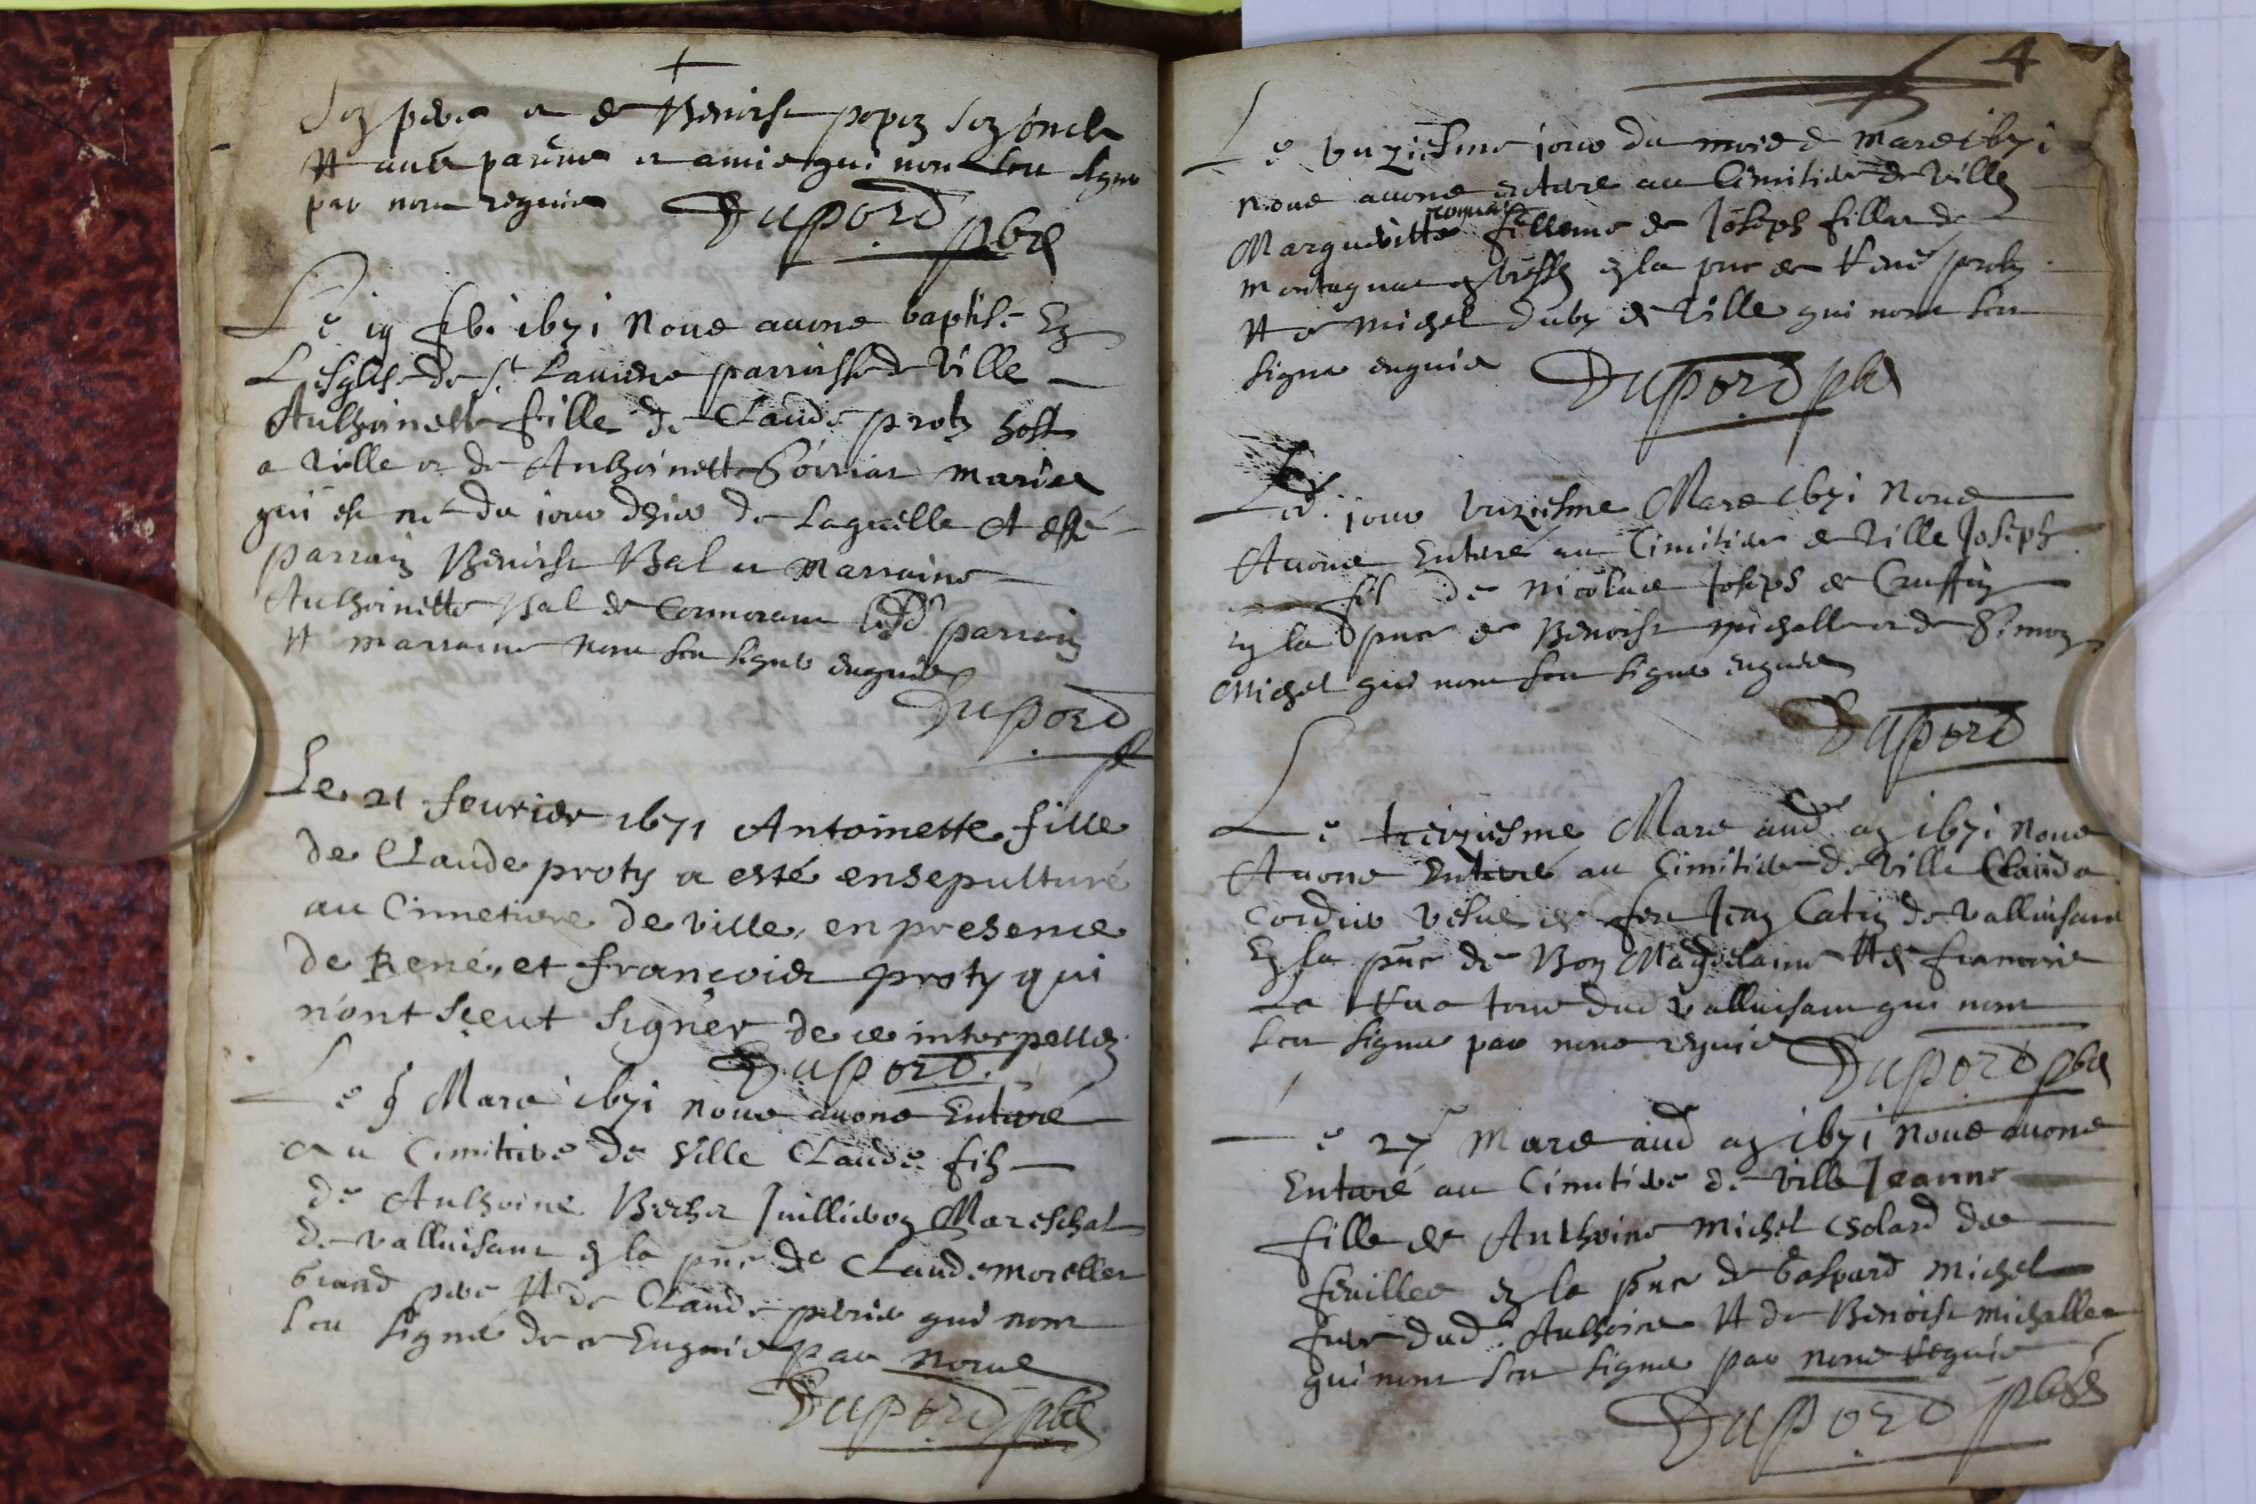 Son pere et de Benoist popon son oncle
Et autre parens et amis qui nont sceu signe
par nous requis Duport pbre
Le 19 feb. 1671 Nous avons baptisé En
Lesglise de St Laurens parroisse de Ville
Anthoinette fille de Claude proty hoste
a Ville et de Anthoinette mariez
qui est née du jour dhier de Laquelle A esté
parrain Benoist Bal et Marraine
Anthoinette Bal de Cormoran lesd. parrain
Et marraine nont sceu signe enquis
Duport
Le 21 feurier 1671 Antoinette fille
de Claude proty a esté ensepulturé
au Cimetiere de ville, en presence
de René, et françois proty qui
n'ont sçeut signer de ce interpellez
Duport
Le 9 Mars 1671 nous avons Enterré
au Cimitiere de Ville Claude fils
de Anthoine Mareschal
de valluisant en la pnce de Claude morellet
Grand pere Et de Claude perrin qui nont
sceu signé de ce Enquis par nous
Duport pbre
4
Le unziesme jour du mois de mars 1671
nous avons enterre au Cimitiere de Ville
Marguerite femme de Joseph fillan de
montagnat en bresse en la pnce de René proty
Et de michel duby de Ville qui nont sceu
signe enquis Duport pbre
Led. jour unziesme Mars 1671 Nous
Avons Enterré au Cimitiere de Ville Joseph
fils de Nicolas Joseph de
en la pnce de Benoist michallet et de Simon
Michel qui nont sceu signe enquis
Duport
Le treiziesme Mars aud. an 1671 nous
Avons Enterré au Cimitiere de Ville Clauda
Cordier vefue de feu Jean Catin de valluisant
En la pnce de Bon Magdelaine Et de francois
La tous dud valluisant qui nont
sceu signe par nous requis Duport pbre
Le 27 Mars aud an 1671 nous avons
Enterré au Cimitiere de Ville Jeanne
fille de Anthoine Michel Solard des
feuilles en la pnce de Gaspard Michel
frere dud. Anthoine Et de Benoist michallet
qui nont sceu signe par nous requis
Duport pbre